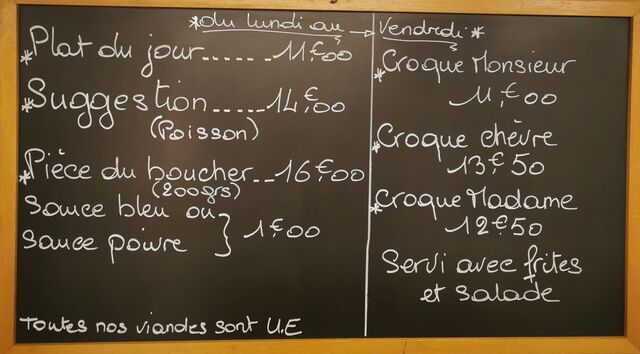 *du lundi au → Vendredi*
*Plat du jour...... 11€00
*Suggestion ..... 14€00
(Poisson)
*Pièce du boucher.. 16€00
(200grs)
Sauce bleu ou
Sauce poivre } 1€00
Toutes nos viandes sont U.E
*Croque Monsieur
11€00
*Croque chèvre
13€50
*Croque Madame
12€50
Servi avec frites
et salade